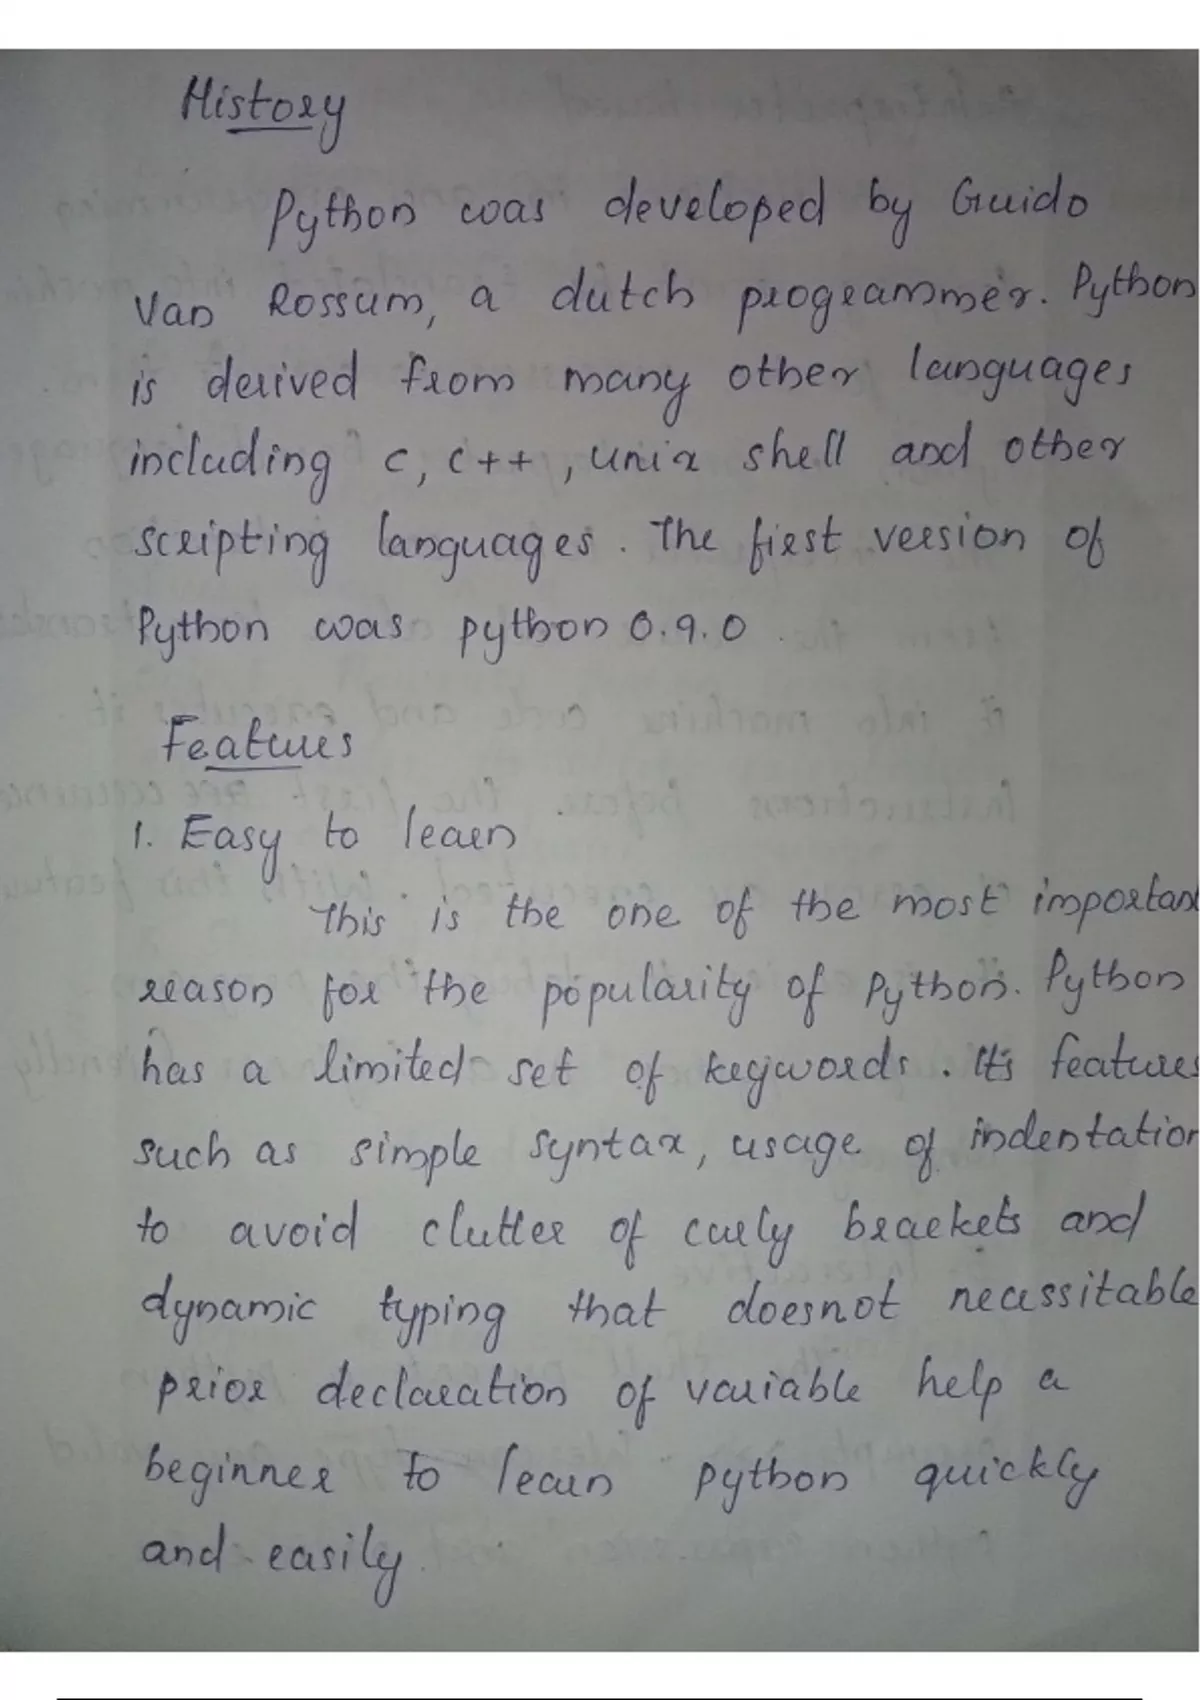 History
Python was developed by Guido
Van Rossum, a dutch programmer. Python
is derived from many other languages
including c, c++, unix shell and other
scripting languages. The first version of
Python was python 0.9.0
Features
1. Easy to learn
This is the one of the most important
reason for the popularity of Python. Python
has a limited set of keywords. It's features
such as simple syntax, usage of indentation
to avoid clutter of curly brackets and
dynamic typing that doesnot necessitable
prior declaration of variable help a
beginner to learn python quickly
and easily.